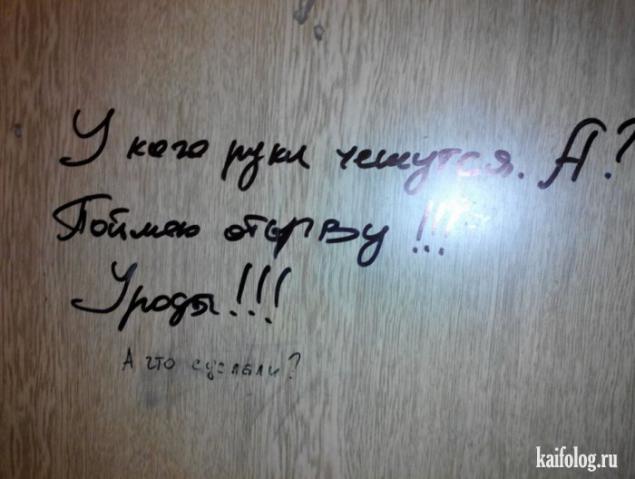 У кого руки чешутся. А?
Поймаю оторву!!!
Уроды!!!
А что сделали?
kaifolog.ru